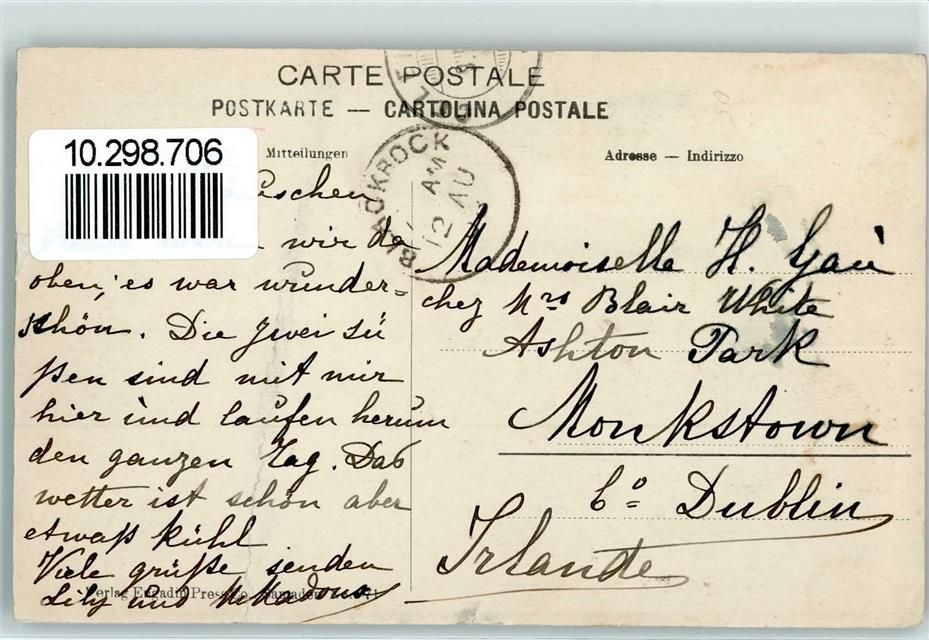 CARTE POSTALE
POSTKARTE — CARTOLINA POSTALE
10.298.706
Mitteilungen
Adresse — Indirizzo
BLACKROCK
AM
12 AU
wir da
oben, es war wunder=
schön. Die zwei sü
ßen sind mit mir
hier und laufen herum
den ganzen Tag. Das
wetter ist schön aber
etwaß kühl
Viele grüße senden
Lily und
Verlag Engadin Press Co. Samaden
Mademoiselle H.
chez Mrs Blair White
Ashton Park
Monkstown
Co Dublin
Irlande